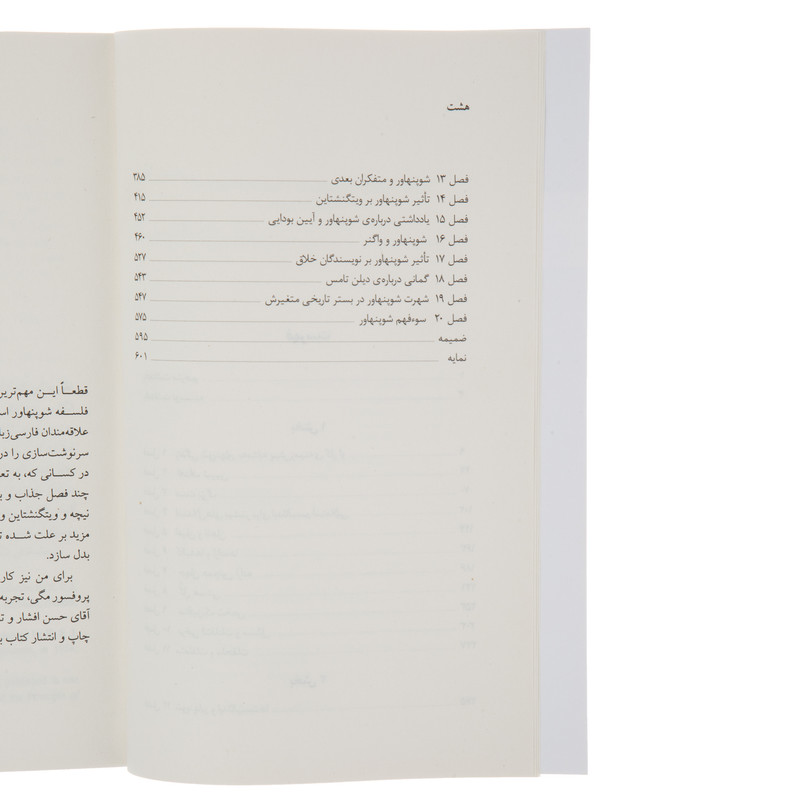 هشت
فصل ۱۳ شوپنهاور و متفکران بعدی ۳۸۵
فصل ۱۴ تأثیر شوپنهاور بر ویتگنشتاین ۴۱۵
فصل ۱۵ یادداشتی درباره‌ی شوپنهاور و آیین بودایی ۴۵۲
فصل ۱۶ شوپنهاور و واگنر ۴۶۰
فصل ۱۷ تأثیر شوپنهاور بر نویسندگان خلاق ۵۲۷
فصل ۱۸ گمانی درباره‌ی دیلن تامس ۵۴۳
فصل ۱۹ شهرت شوپنهاور در بستر تاریخی متغیرش ۵۴۷
فصل ۲۰ سوءفهم شوپنهاور ۵۷۵
ضمیمه ۵۹۵
نمایه ۶۰۱
قطعاً این مهم‌ترین
فلسفه شوپنهاور
علاقه‌مندان
سرنوشت‌سازی را
در کسانی که، به
چند فصل جذاب و
نیچه و ویتگنشتاین و
مزید بر علت شده
بدل سازد.
برای من نیز
پروفسور مگی،
آقای حسن افشار و
چاپ و انتشار کتاب